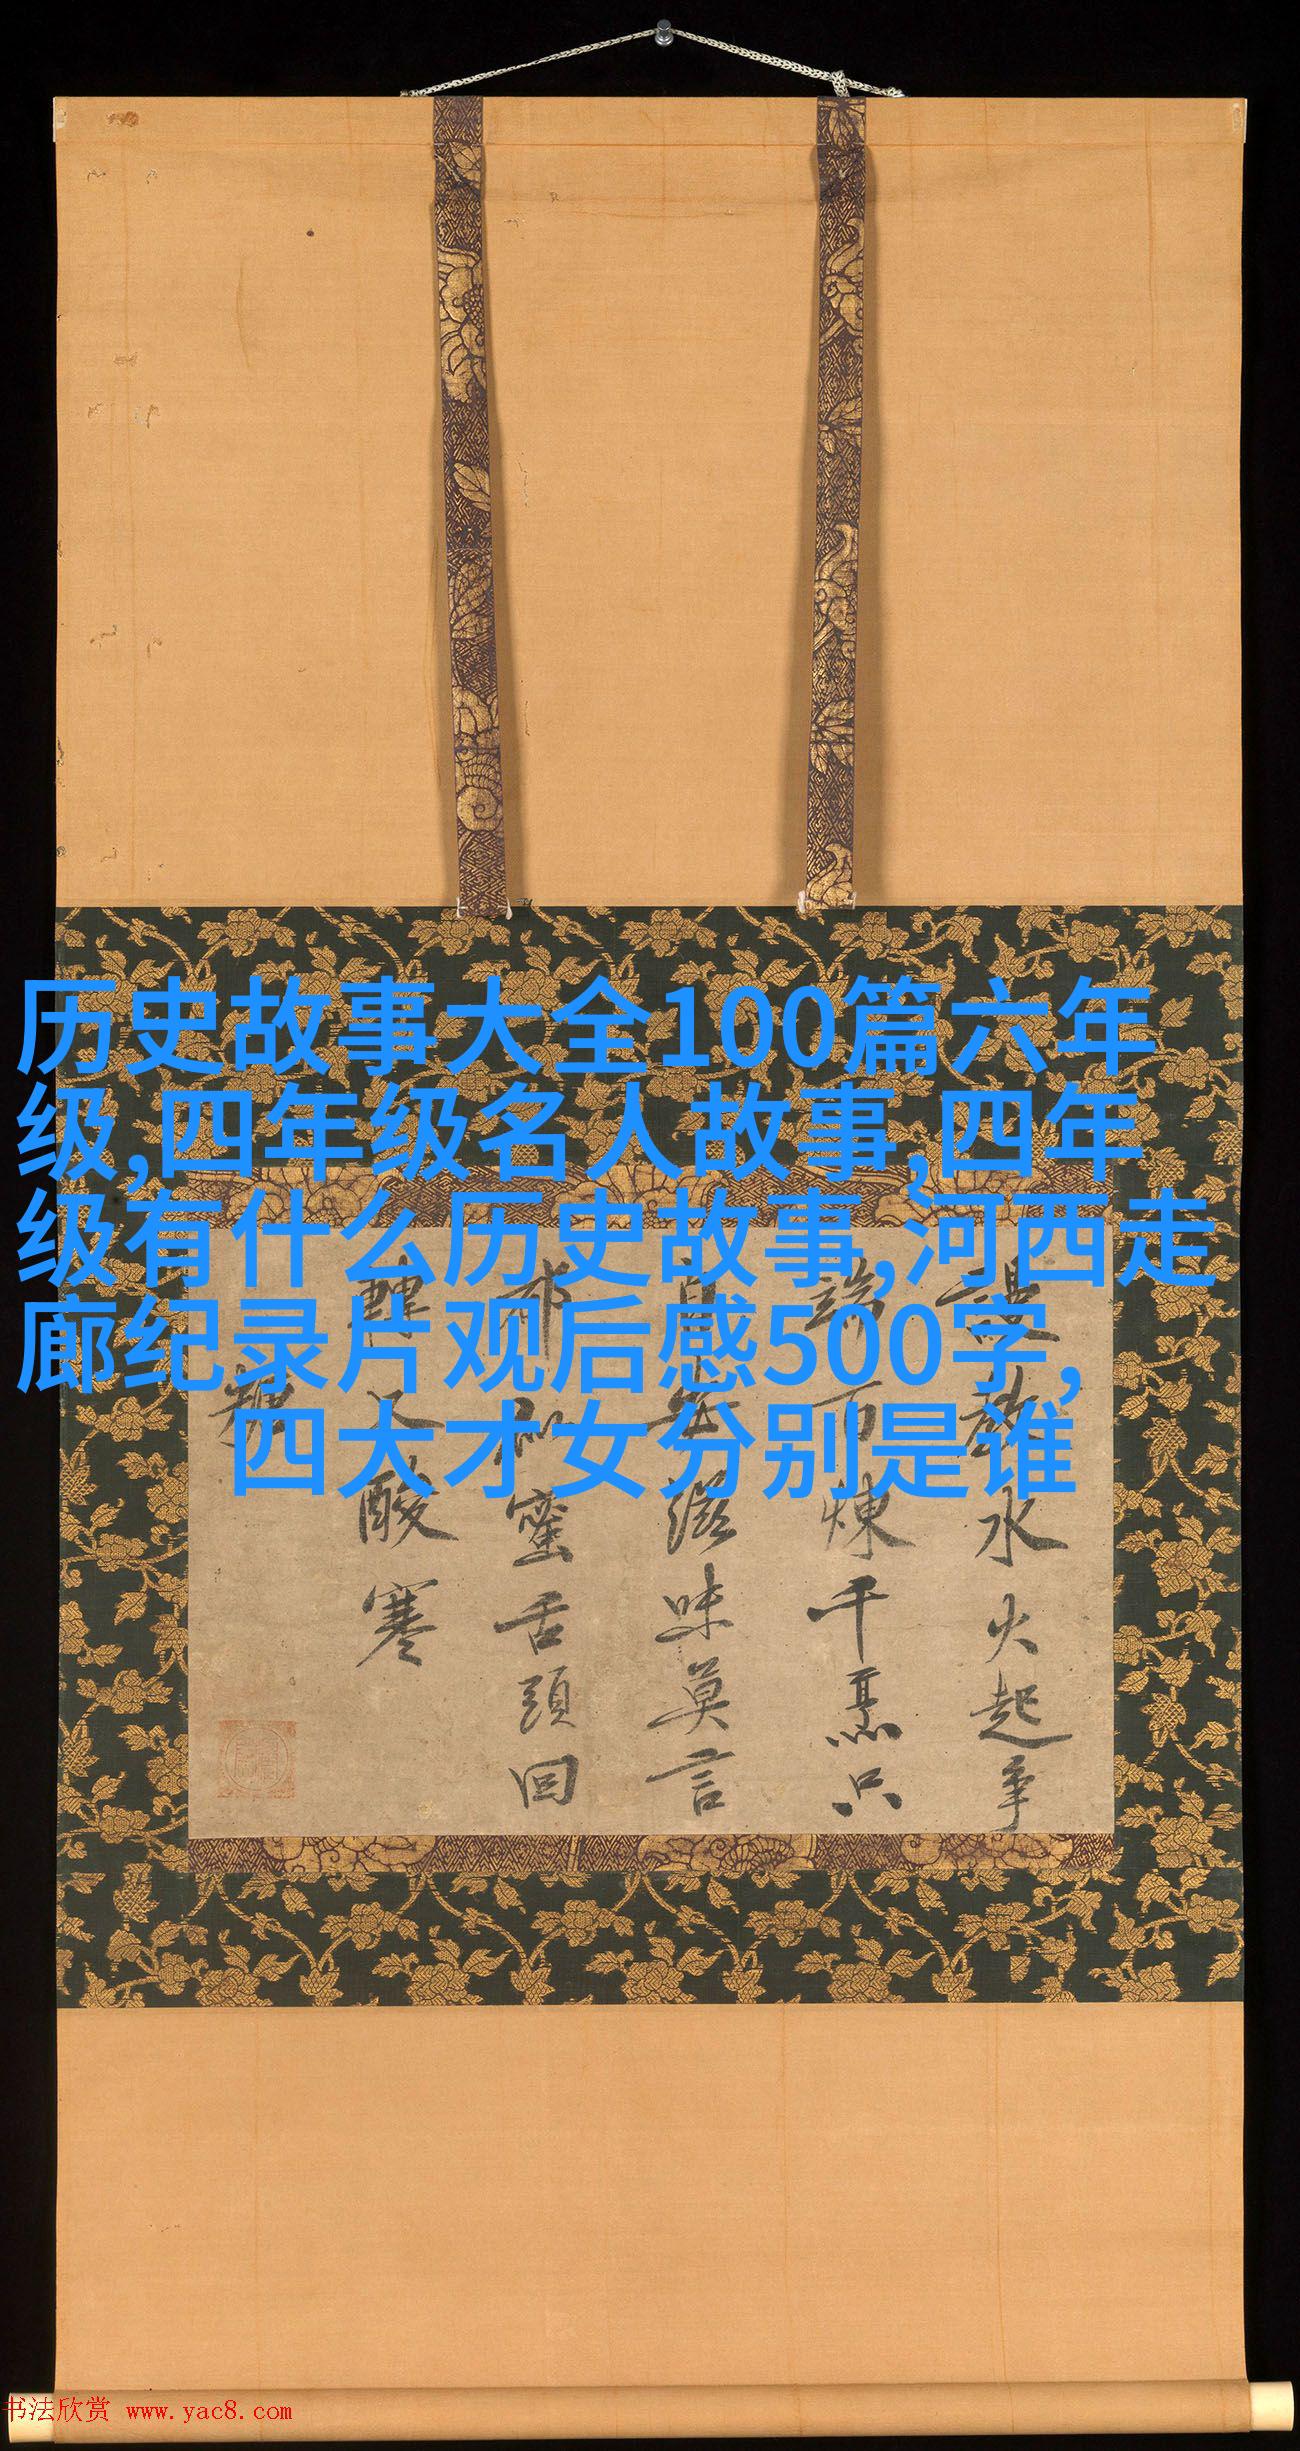 历史故事大全100篇六年
级,四年级名人故事,四年
级有什么历史故事,河西走
廊纪录片观后感500字,
四大才女分别是谁
水火起爭
端百煉千烹只
滋味莫言
蜜舌頭回
酸寒
书法欣赏 www.yac8.com